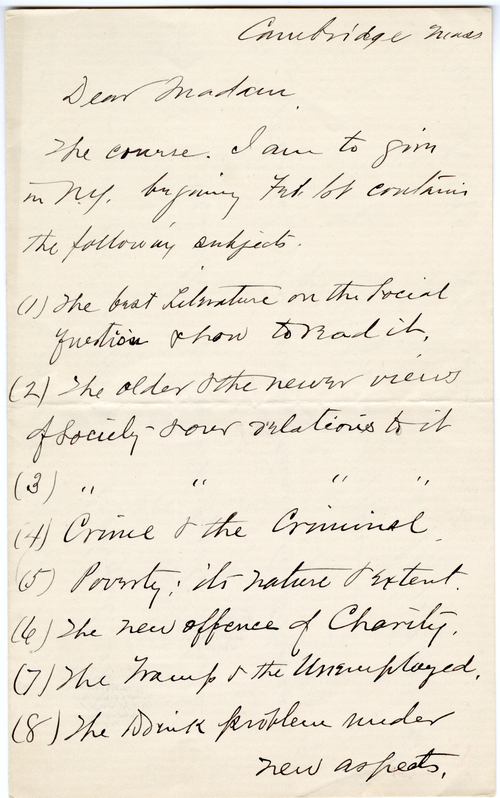 Cambridge Mass
Dear Madam.
The course. I am to give
in N.Y. begining Feb 1st contains
the following subjects.
(1) The best Literature on the Social
Question & how to read it,
(2) The older & the newer views
of Society - & our relations to it
(3) " " " "
(4) Crime & the Criminal.
(5) Poverty; its nature & Extent.
(6) The new offence of Charity.
(7) The Tramp & the Unemployed.
(8) The Drink problem under
new aspects.